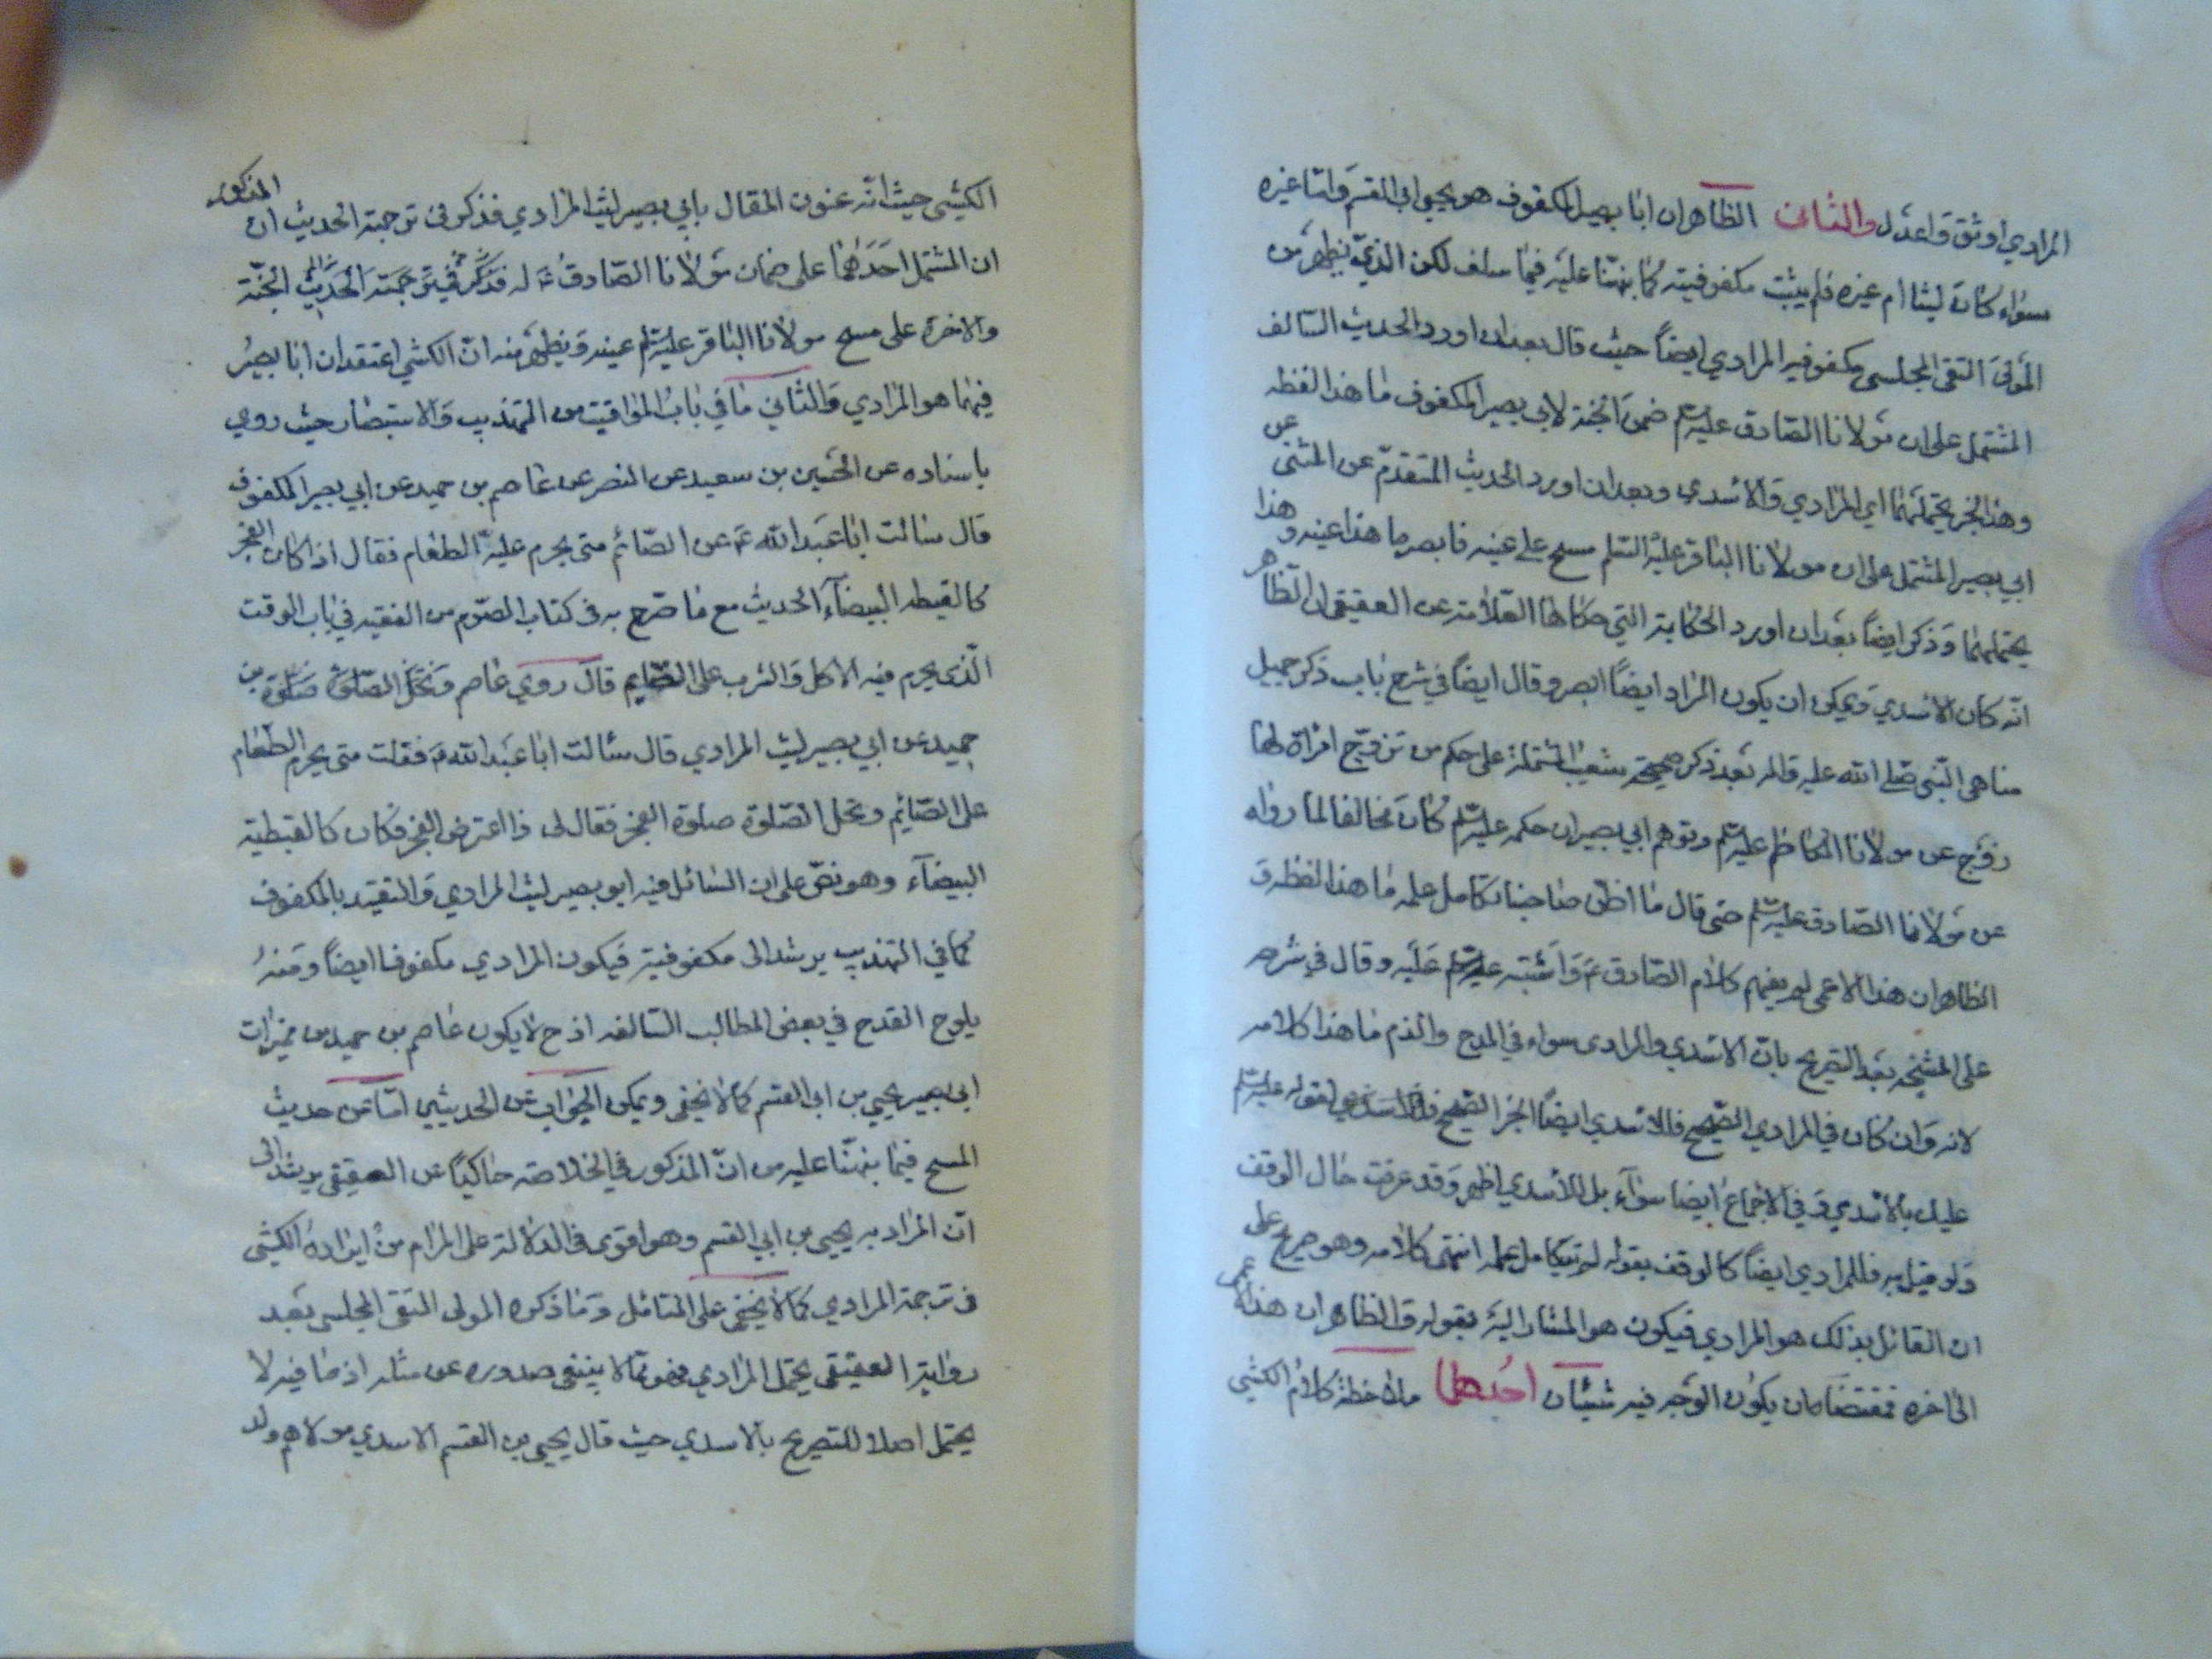 المرادي اوثق واعدل والثاني الظاهر ان ابا بصير المكفوف هو يحيى ابي القسم واما غيره
سواء كان ليثا ام غيره فلم يثبت مكفوفيته كما نبهنا عليه فيما سلف لكن الذي يظهر من
المولى التقى المجلسى مكفوفية المرادي ايضاً حيث قال بعد ان اورد الحديث السالف
المشتمل على ان مولانا الصادق عليه السلم ضمن الجنة لابى بصير المكفوف ما هذا لفظه
وهذا الخبر يحتملهما اي المرادي والاسدي وبعد ان اورد الحديث المتقدم عن المثنى عن
ابي بصير المشتمل على ان مولانا الباقر عليه السلم مسح على عينيه فابصر ما هذا عينه وهذا
يحتملهما وذكر ايضاً بعد ان اورد الحكاية التي حكاها العلامة عن العقيقى ان الظاهر
انه كان الاسدي ويمكن ان يكون المراد ايضاً ابصر وقال ايضاً في شرح باب ذكر جميل
مناهى النبى صلى الله عليه واله بعد ذكر صحيحة شعيب المشتملة على حكم من تزوج امراة لها
زوج عن مولانا الكاظم عليه السلم وتوهم ابي بصير ان حكمه عليه السلم كان مخالفا لما رواه
عن مولانا الصادق عليه السلم حتى قال ما اظن صاحبنا تكامل علمه ما هذا لفظه و
الظاهر ان هذا الاعمى لم يفهم كلام الصادق ع واشتبه عليه وقال في شرحه
على المشيخه بعد التصريح بان الاسدي والمرادى سواء في المدح والذم ما هذا كلامه
لانه وان كان في المرادي الصحيح فللاسدي ايضاً الخبر الصحيح لقوله عليه السلم
عليك بالاسدي وفي الاجماع ايضا سواء بل للاسدي اظهر وقد عرفت حال الوقف
ولو قيل به فللمرادي ايضاً كالوقف بقوله لم يتكامل علمه انتهى كلامه وهو صريح على
ان القائل بذلك هو المرادي فيكون هو المشار اليه بقوله والظاهر ان هذا الاعمى
الى اخره فمقتضاه ان يكون الوجه فيه شيئان احدهما ملاحظة كلام الكشي
الكشي حيث انه عنون المقال بابي بصير ليث المرادي فذكر في ترجمته الحديث المذكور
ان المشتمل احدهما على ضمان مولانا الصادق ع له الجنة
والاخر على مسح مولانا الباقر عليه السلم عينه ويظهر منه ان الكشي اعتقد ان ابا بصير
فيهما هو المرادي والثاني ما في باب المواقيت من التهذيب والاستبصار حيث روي
باسناده عن الحسين بن سعيد عن النضر عن عاصم بن حميد عن ابي بصير المكفوف
قال سالت ابا عبد الله ع عن الصائم متى يحرم عليه الطعام فقال اذا كان الفجر
كالقبطيه البيضاء الحديث مع ما صرح به في كتاب الصوم من الفقيه في باب الوقت
الذى يحرم فيه الاكل والشرب على الصايم قال روي عاصم بن
حميد عن ابي بصير ليث المرادي قال سالت ابا عبد الله ع فقلت متى يحرم الطعام
على الصائم وتحل الصلوة صلوة الفجر فقال لى اذا اعترض الفجر فكان كالقبطية
البيضاء وهو نص على ان السائل فيه ابو بصير ليث المرادي والتقييد بالمكفوف
كما في التهذيب يرشد الى مكفوفيته فيكون المرادي مكفوفا ايضاً ومنه
يلوح القدح في بعض المطالب السالفه اذ ح لا يكون عاصم بن حميد من مميزات
ابى بصير يحيى بن ابى القسم كما لا يخفى ويمكن الجواب عن الحديثين اما عن حديث
المسح فيما نبهنا عليه من ان المذكور في الخلاصه حاكياً عن العقيقى يرشد الى
ان المراد به يحيى بن ابي القسم وهو اقوى فى الدلالة على المرام من ايراده الكشي
فى ترجمة المرادي كما لا يخفى على المتامل وما ذكره المولى التقى المجلسى بعد
رواية العقيقى يحتمل المرادي فهو مما لا ينبغى صدوره عن مثله اذ ما فيه لا
يحتمل اصلا للتصريح بالاسدي حيث قال يحيى بن القسم الاسدي مولاهم ولد